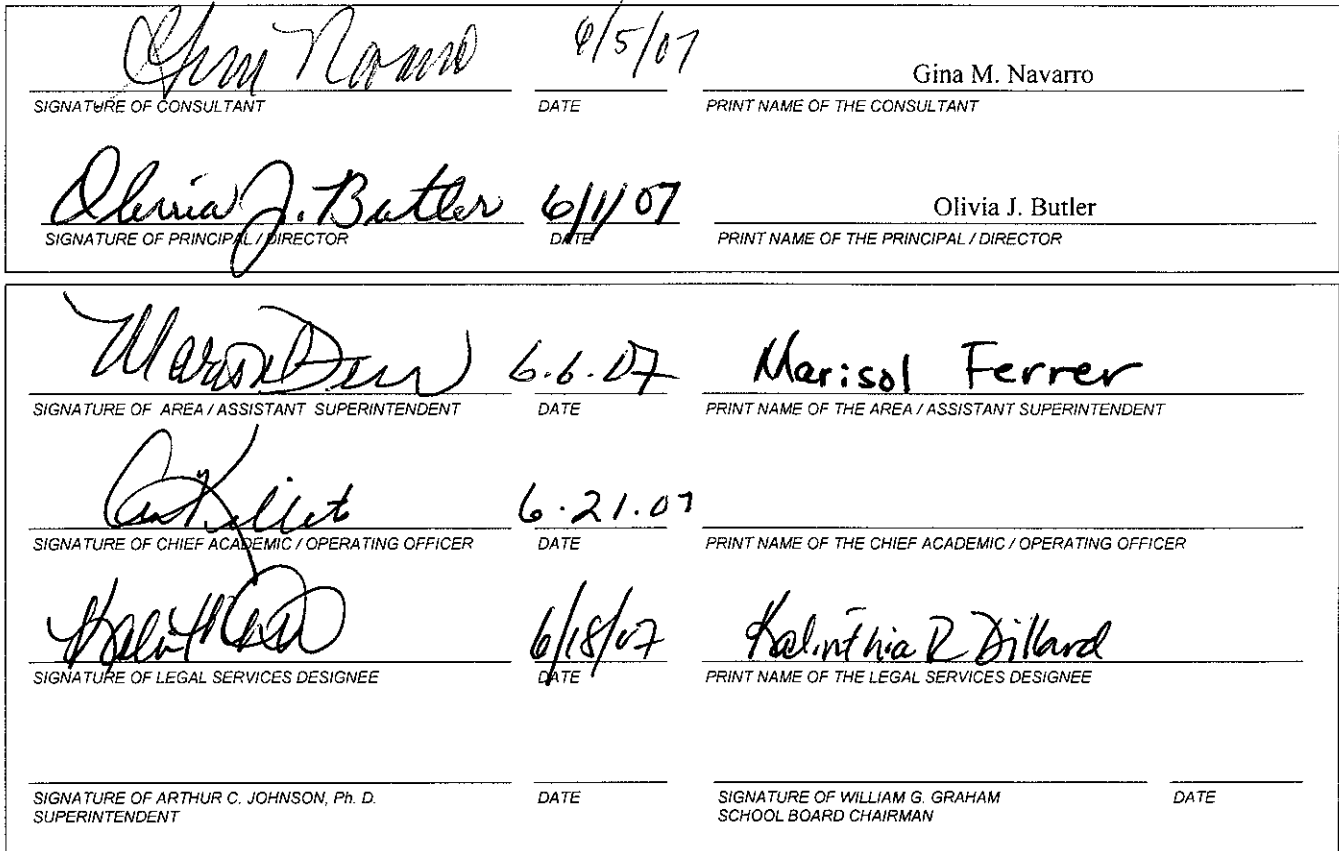 6/5/07 Gina M. Navarro
SIGNATURE OF CONSULTANT DATE PRINT NAME OF THE CONSULTANT
Olivia J. Butler 6/1/07 Olivia J. Butler
SIGNATURE OF PRINCIPAL / DIRECTOR DATE PRINT NAME OF THE PRINCIPAL / DIRECTOR
6.6.07 Marisol Ferrer
SIGNATURE OF AREA / ASSISTANT SUPERINTENDENT DATE PRINT NAME OF THE AREA / ASSISTANT SUPERINTENDENT
6.21.07
SIGNATURE OF CHIEF ACADEMIC / OPERATING OFFICER DATE PRINT NAME OF THE CHIEF ACADEMIC / OPERATING OFFICER
6/18/07 Kalinthia R Dillard
SIGNATURE OF LEGAL SERVICES DESIGNEE DATE PRINT NAME OF THE LEGAL SERVICES DESIGNEE
SIGNATURE OF ARTHUR C. JOHNSON, Ph. D. DATE SIGNATURE OF WILLIAM G. GRAHAM DATE
SUPERINTENDENT SCHOOL BOARD CHAIRMAN